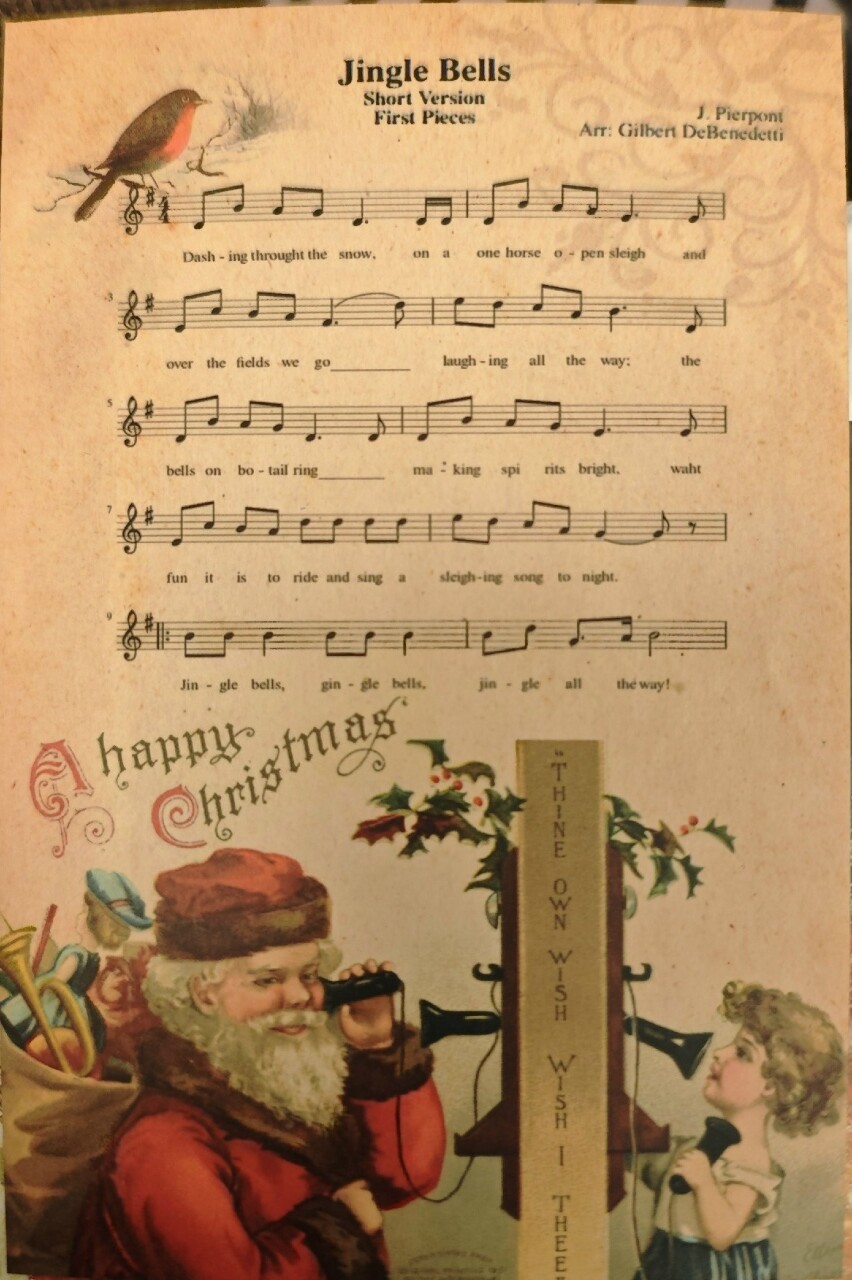 Jingle Bells
Short Version
First Pieces
J. Pierpont
Arr: Gilbert DeBenedetti
Dash - ing throught the snow, on a one horse o - pen sleigh and
3
over the fields we go__________ laugh - ing all the way; the
5
bells on bo - tail ring________ ma - king spi rits bright, waht
7
fun it is to ride and sing a sleigh-ing song to night.
9
Jin - gle bells, gin - gle bells, jin - gle all the way!
A happy
Christmas
"THINE OWN WISH WISH I THEE